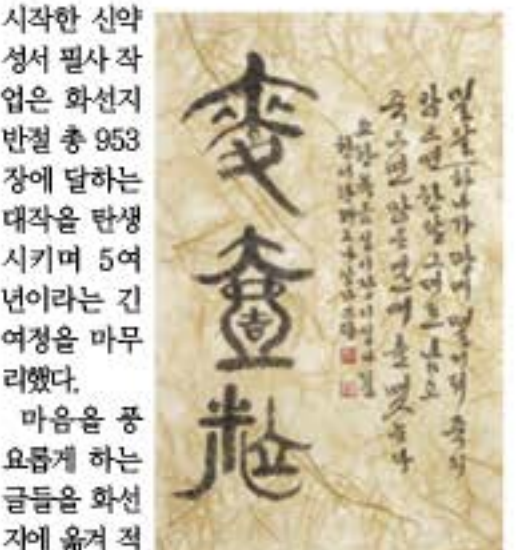 시작한 신약
성서 필사 작
업은 화선지
반절 총 953
장에 달하는
대작을 탄생
시키며 5여
년이라는 긴
여정을 마무
리했다.
마음을 풍
요롭게 하는
글들을 화선
지에 옮겨 적
밀알 하나가 땅에 떨어져 죽지
않으면 한 알 그대로 남고
죽으면 많은 열매를 맺는다
요한복음 십이장 이십사절
麥壹粒